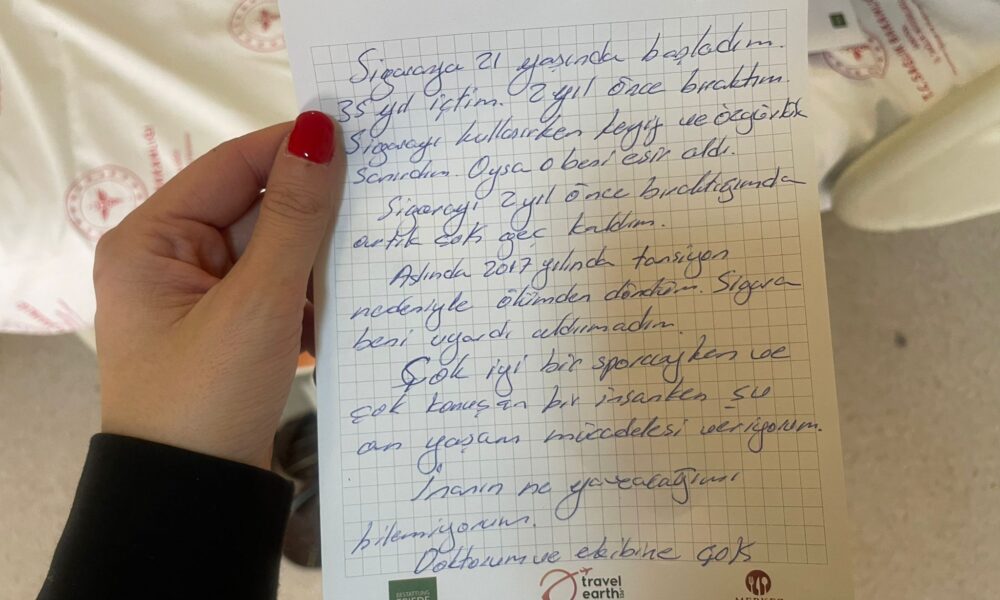 Sigaraya 21 yaşında başladım.
35 yıl içtim. 2 yıl önce bıraktım.
Sigarayı kullanırken keyif ve özgürlük
sanırdım. Oysa o beni esir aldı.
Sigarayı 2 yıl önce bıraktığımda
artık çok geç kaldım.
Aslında 2017 yılında tansiyon
nedeniyle ölümden döndüm. Sigara
beni uyardı aldırmadım.
Çok iyi bir sporcuyken ve
çok konuşan bir insanken şu
an yaşam mücadelesi veriyorum.
İnanın ne yapacağımı
bilemiyorum.
Doktorum ve ekibine çok
BESTATTUNG
travel
earth
T.C. SAĞLIK BAKANLIĞI